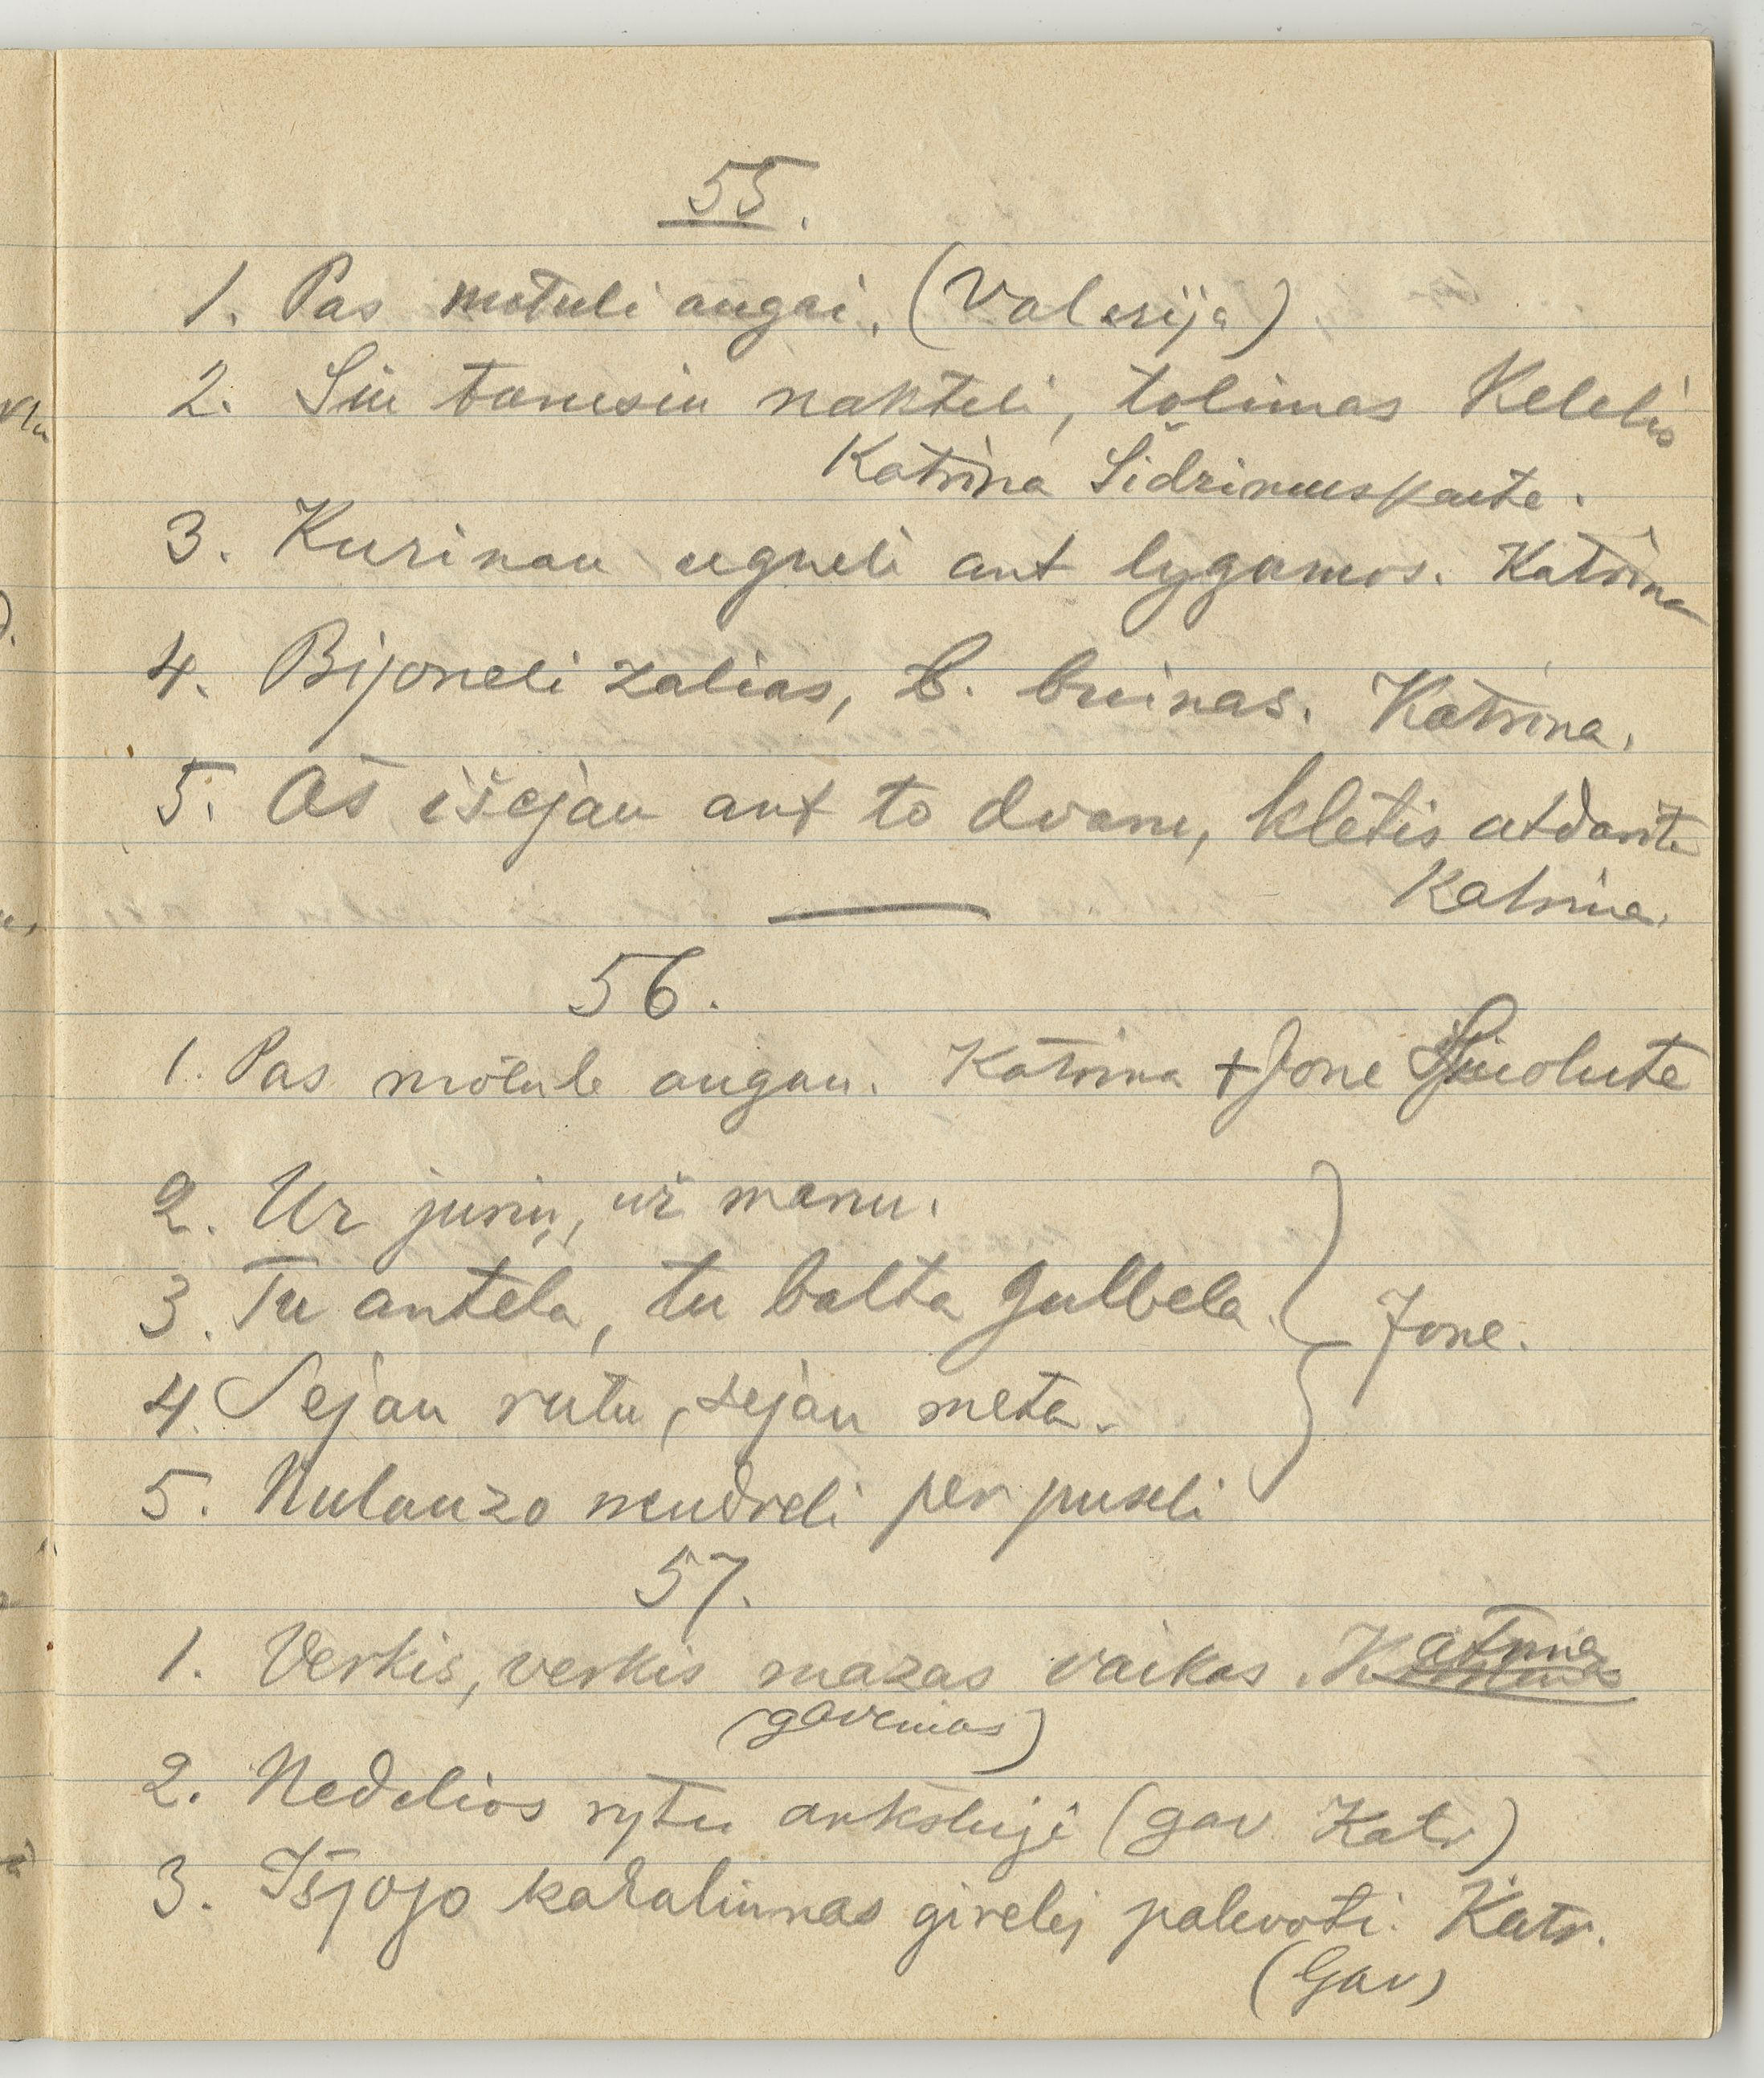 55.
1. Pas motuli augai. (Valerija)
2. Šiu tamsiu nakteli, tolimas Kelelis
Katrina Šidriauskaite.
3. Kurinau ugneli ant lygumos. Katrina
4. Bijoneli zalias, b. buinas. Katrina.
5. Aš išejau ant to dvaru, kletis atdarita
Katrina.
56.
1. Pas motule augau. Katrina + Jone
2. Uz juriu, už mariu.
3. Tu antela, tu balta gulbela.
Jone.
4. Sejau rutu, sejau meta.
5. Nulauzo nendreli per puseli
57.
1. Verkis, verkis mazas vaikas. Katrina
(gavenias)
2. Nedelios rytu ankstuji (gav Katr)
3. Išjojo karaliunas girelej palevoti. Katr.
(Gav)